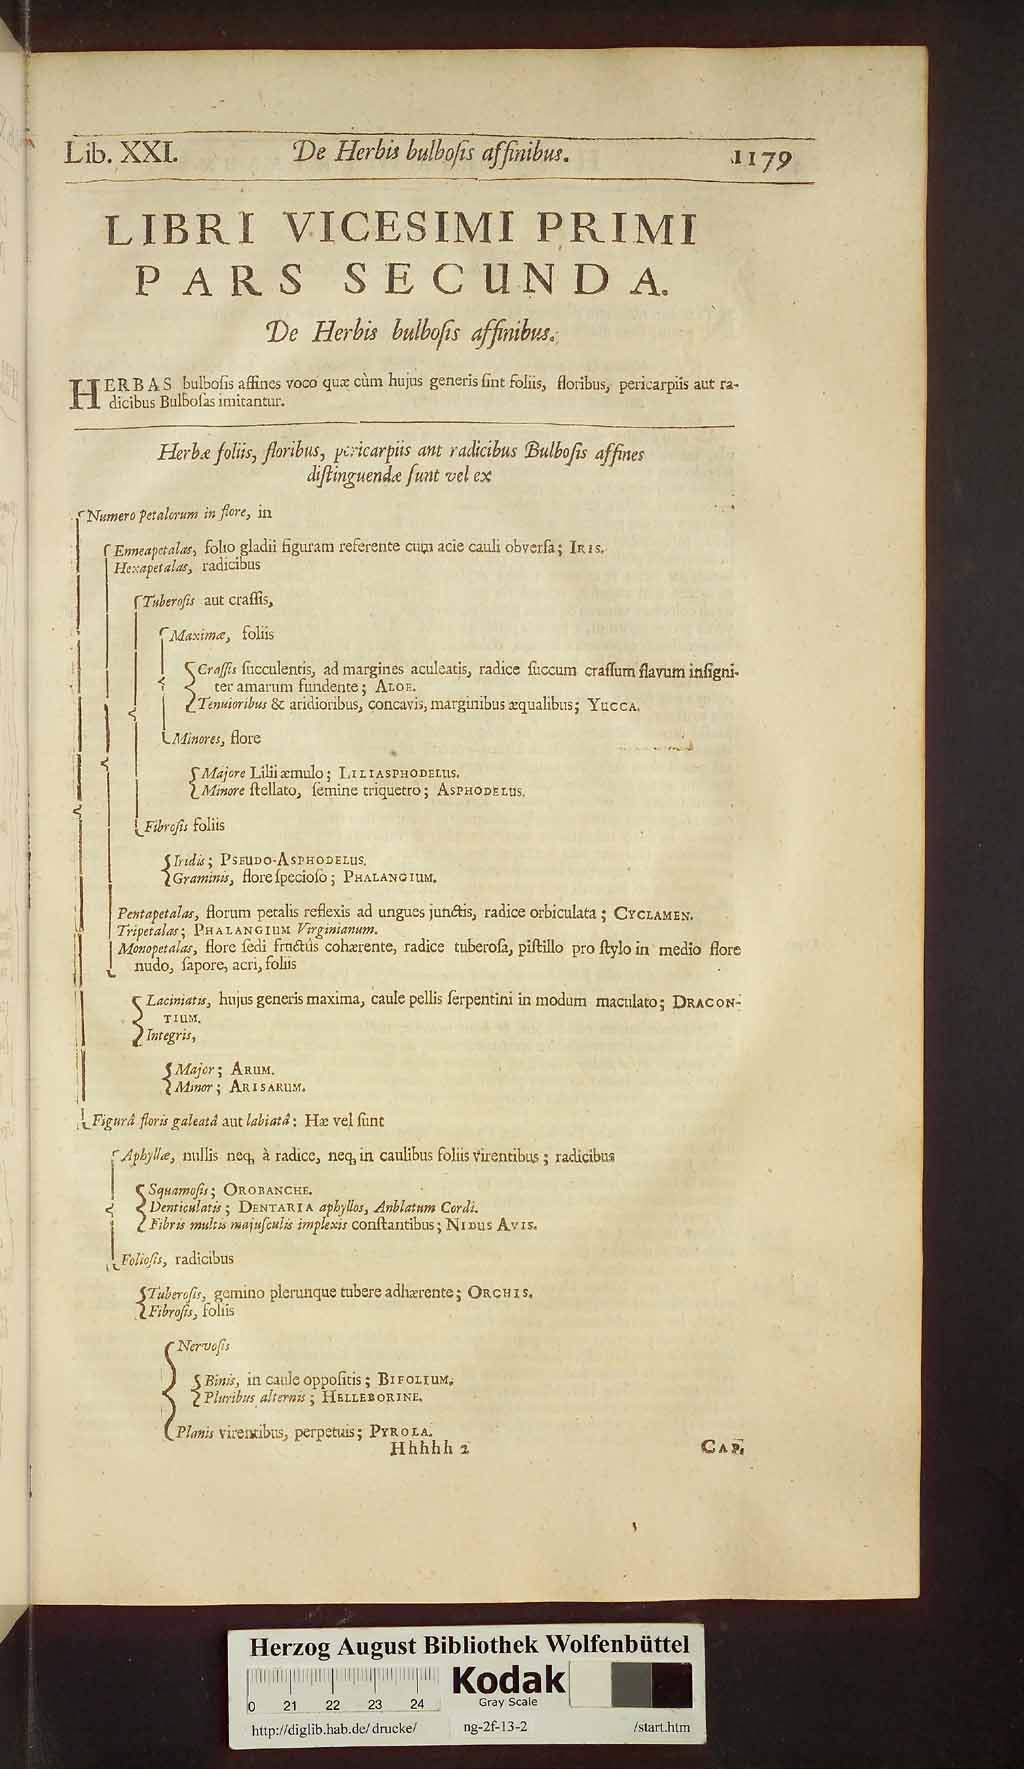 Lib. XXI. De Herbis bulboſis affinibus. 1179
LIBRI VICESIMI PRIMI
PARS SECUNDA.
De Herbis bulboſis affinibus.
HERBAS bulboſis affines voco quæ cùm hujus generis ſint foliis, floribus, pericarpiis aut ra-
dicibus Bulboſas imitantur.
Herbæ foliis, floribus, pericarpiis aut radicibus Bulboſis affines
diſtinguendæ ſunt vel ex
Numero petalorum in flore, in
Enneapetalas, folio gladii figuram referente cum acie cauli obverſa; IRIS.
Hexapetalas, radicibus
Tuberoſis aut craſſis,
Maximæ, foliis
Craſſis ſucculentis, ad margines aculeatis, radice ſuccum craſſum flavum inſigni-
ter amarum fundente; ALOE.
Tenuioribus & aridioribus, concavis, marginibus æqualibus; YUCCA.
Minores, flore
Majore Lilii æmulo; LILIASPHODELUS.
Minore ſtellato, ſemine triquetro; ASPHODELUS.
Fibroſis foliis
Iridis; PSEUDO-ASPHODELUS.
Graminis, flore ſpecioſo; PHALANGIUM.
Pentapetalas, florum petalis reflexis ad ungues junctis, radice orbiculata; CYCLAMEN.
Tripetalas; PHALANGIUM Virginianum.
Monopetalas, flore ſedi fructûs cohærente, radice tuberoſa, piſtillo pro ſtylo in medio flore
nudo, ſapore, acri, foliis
Laciniatis, hujus generis maxima, caule pellis ſerpentini in modum maculato; DRACON-
TIUM.
Integris,
Major; ARUM.
Minor; ARISARUM.
Figurâ floris galeatâ aut labiatâ: Hæ vel ſunt
Aphyllæ, nullis neq, à radice, neq, in caulibus foliis virentibus; radicibus
Squamoſis; OROBANCHE.
Denticulatis; DENTARIA aphyllos, Anblatum Cordi.
Fibris multis majuſculis implexis conſtantibus; NIDUS AVIS.
Folioſis, radicibus
Tuberoſis, gemino plerunque tubere adhærente; ORCHIS.
Fibroſis, foliis
Nervoſis
Binis, in caule oppoſitis; BIFOLIUM.
Pluribus alternis; HELLEBORINE.
Planis virentibus, perpetuis; PYROLA.
Hhhhh 2 CAP.
Herzog August Bibliothek Wolfenbüttel
Kodak
Gray Scale
0 21 22 23 24
http://diglib.hab.de/drucke/ ng-2f-13-2 /start.htm